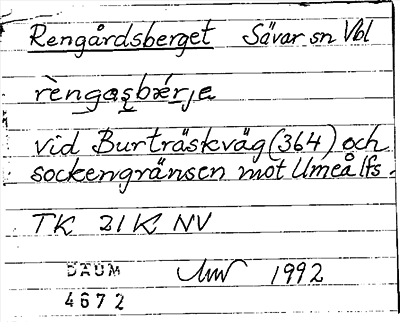 Rengårdsberget Sävar sn Vbl
rèngo̲s̨bǽr̲j̲e
vid Burträskväg (364) och
sockengränsen mot Umeå lfs.
TK 21K NV
1992
DAUM
4672